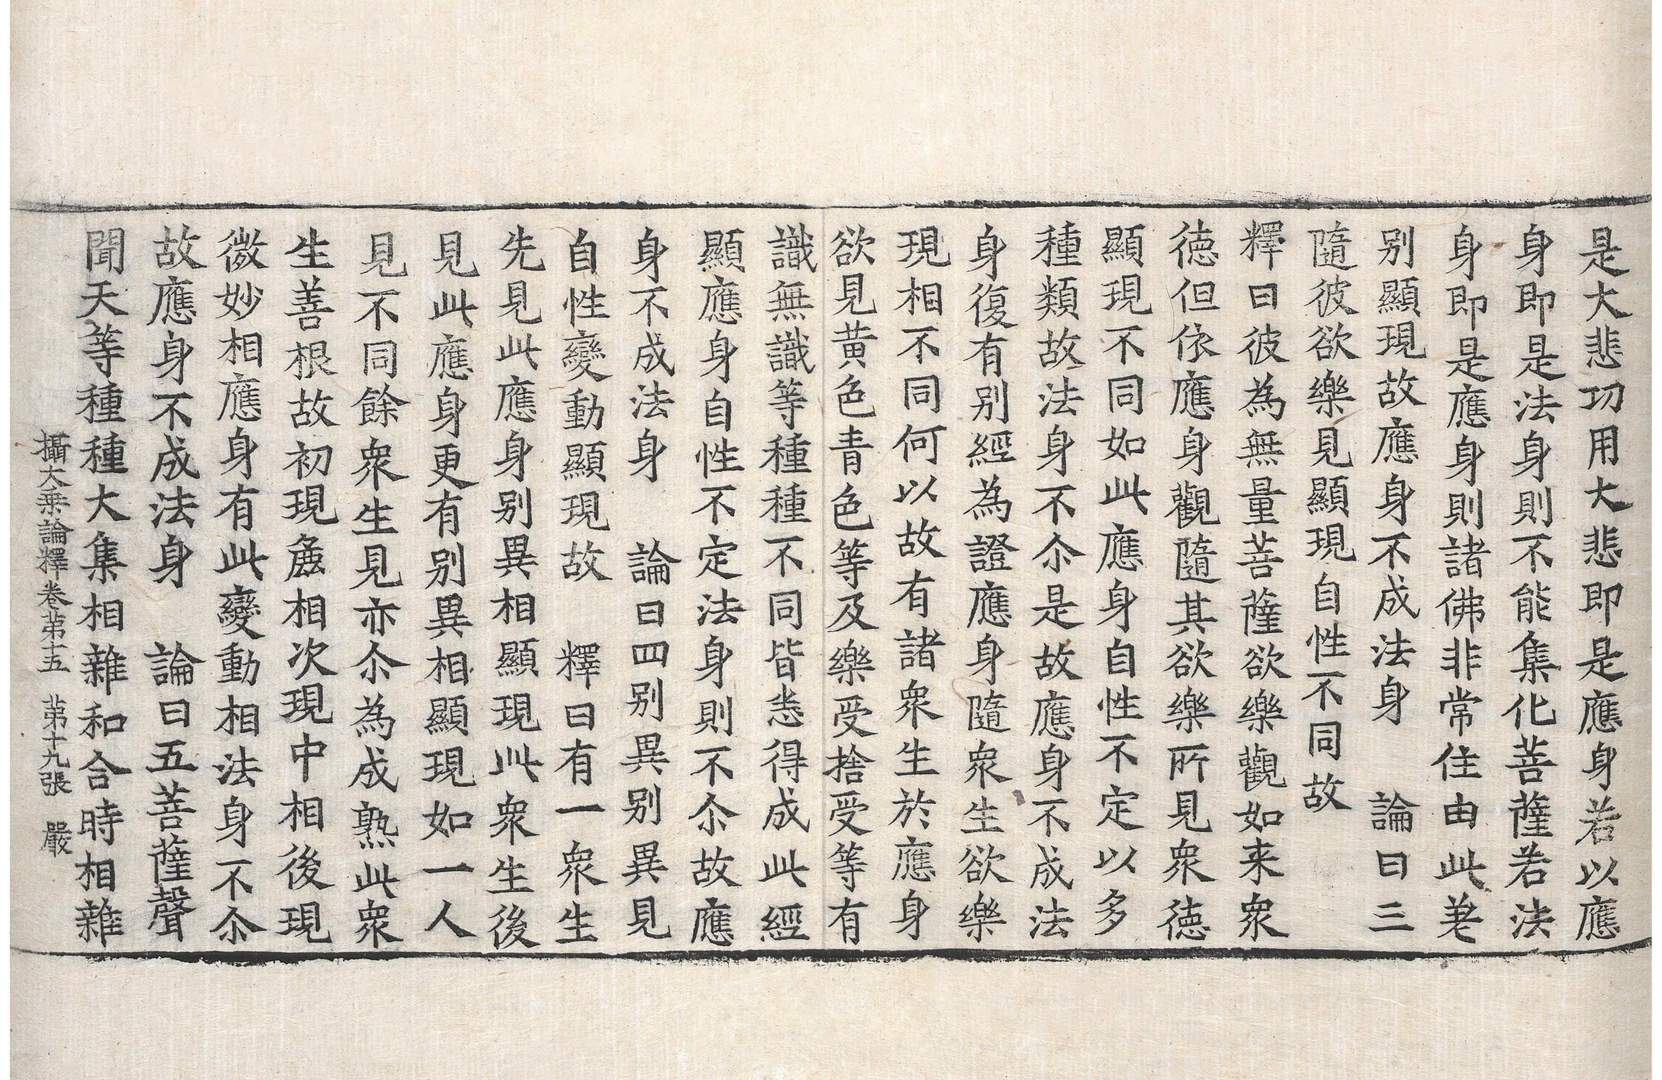 是大悲功用大悲即是應身若以應
身即是法身則不能集化菩薩若法
身即是應身則諸佛非常住由此差
别顯現故應身不成法身　論曰三
隨彼欲樂見顯現自性不同故
釋曰彼為無量菩薩欲樂觀如来衆
徳但依應身觀隨其欲樂所見衆徳
顯現不同如此應身自性不定以多
種類故法身不尒是故應身不成法
身復有别經為證應身隨衆生欲樂
現相不同何以故有諸衆生於應身
欲見黄色青色等及樂受捨受等有
識無識等種種不同皆悉得成此經
顯應身自性不定法身則不尒故應
身不成法身　論曰四别異别異見
自性變動顯現故　釋曰有一衆生
先見此應身别異相顯現此衆生後
見此應身更有别異相顯現如一人
見不同餘衆生見亦尒為成熟此衆
生善根故初現麁相次現中相後現
微妙相應身有此變動相法身不尒
故應身不成法身　論曰五菩薩聲
聞天等種種大集相雜和合時相雜
攝大乗論釋卷苐十五　苐十九張　嚴